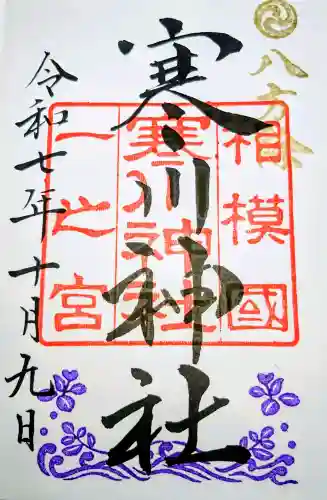 八方除
寒川神社
相模國
寒川神社
一之宮
令和七年十月九日